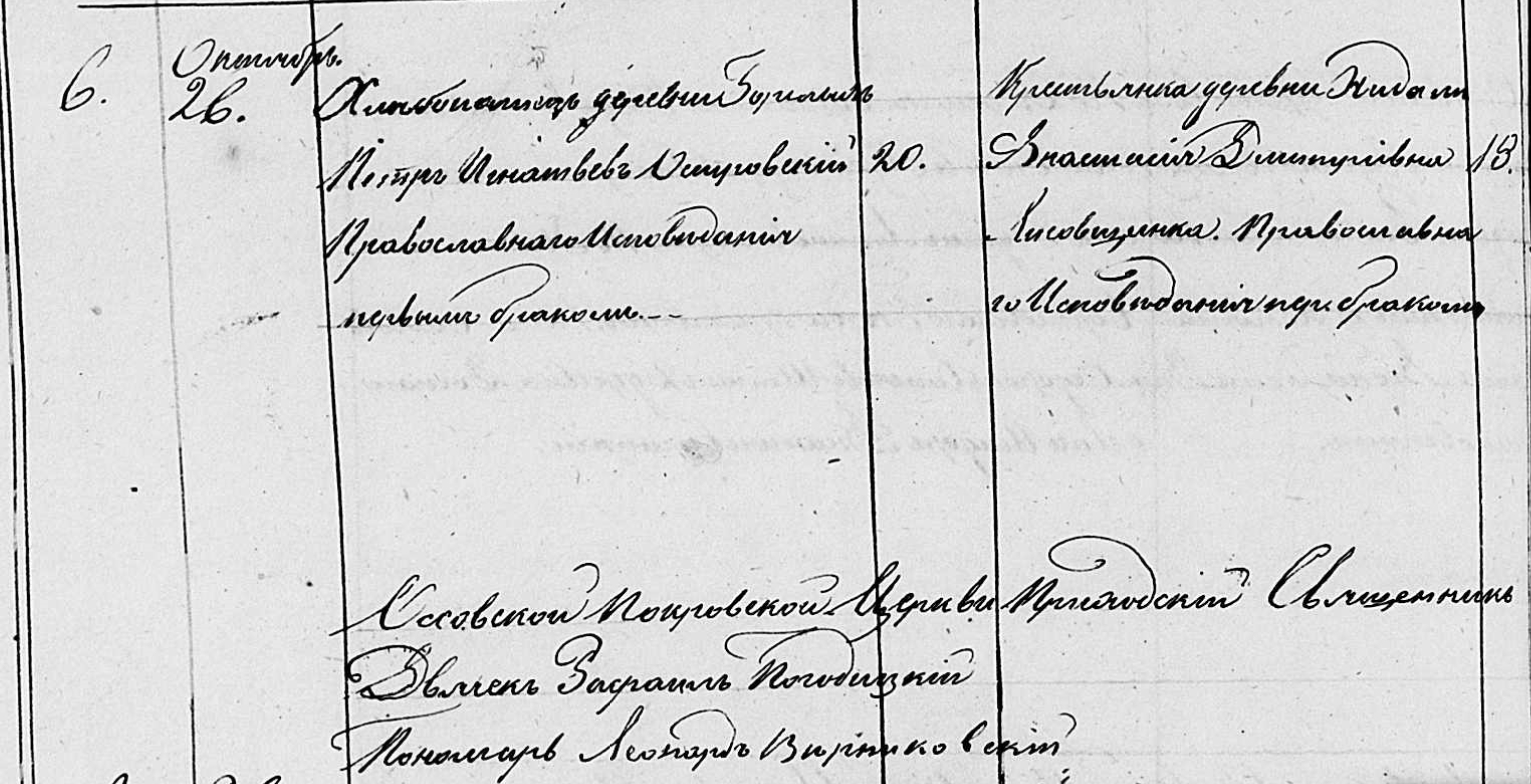 6.
Октябрь.
26.
Хлебопашецъ деревни
Петръ Игнатьевъ Островскій 20.
Православнаго Исповѣданія
первымъ бракомъ.
Крестьянка деревни
Анастасія Дмитріевна 18.
Лисовщинка. Православна
го Исповѣданія пер. бракомъ
Оссовской Покровской Церкви Приходскій Священникъ
Дьячекъ
Пономарь Леонардъ